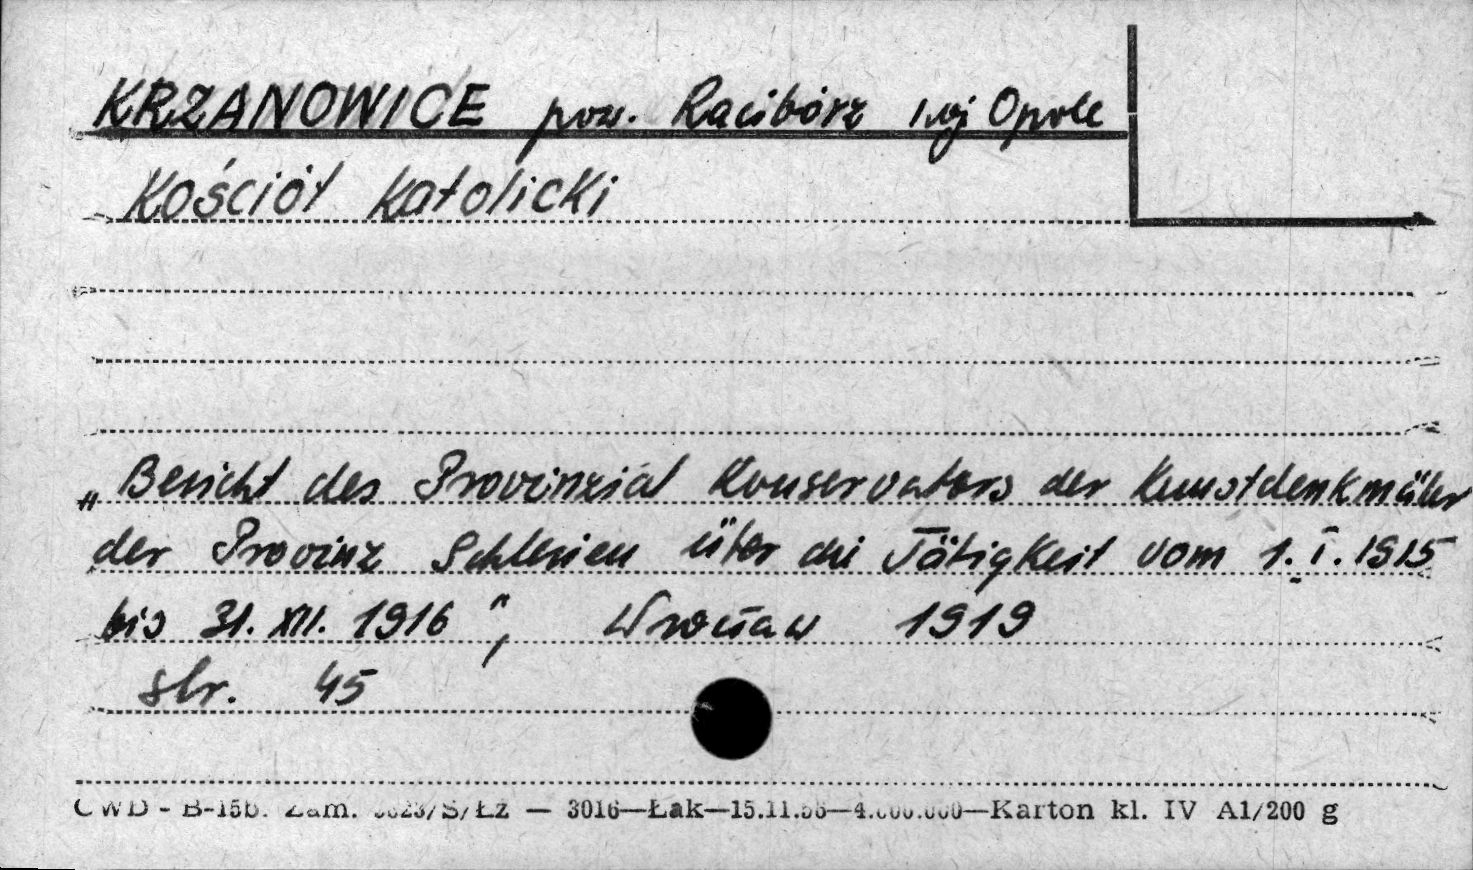 KRZANOWICE pow. Racibórz woj Opole
Kościół Katolicki
„Bericht des Provinzial Konservators der Kunstdenkmäler
der Provinz Schlesien über die Tätigkeit vom 1. I. 1915
bis 31. XII. 1916", Wrocław 1919
str. 45
CWD - B-15b. Zam. /S/Łż — 3016—Łak—15.11.56—4.000.000—Karton kl. IV A1/200 g